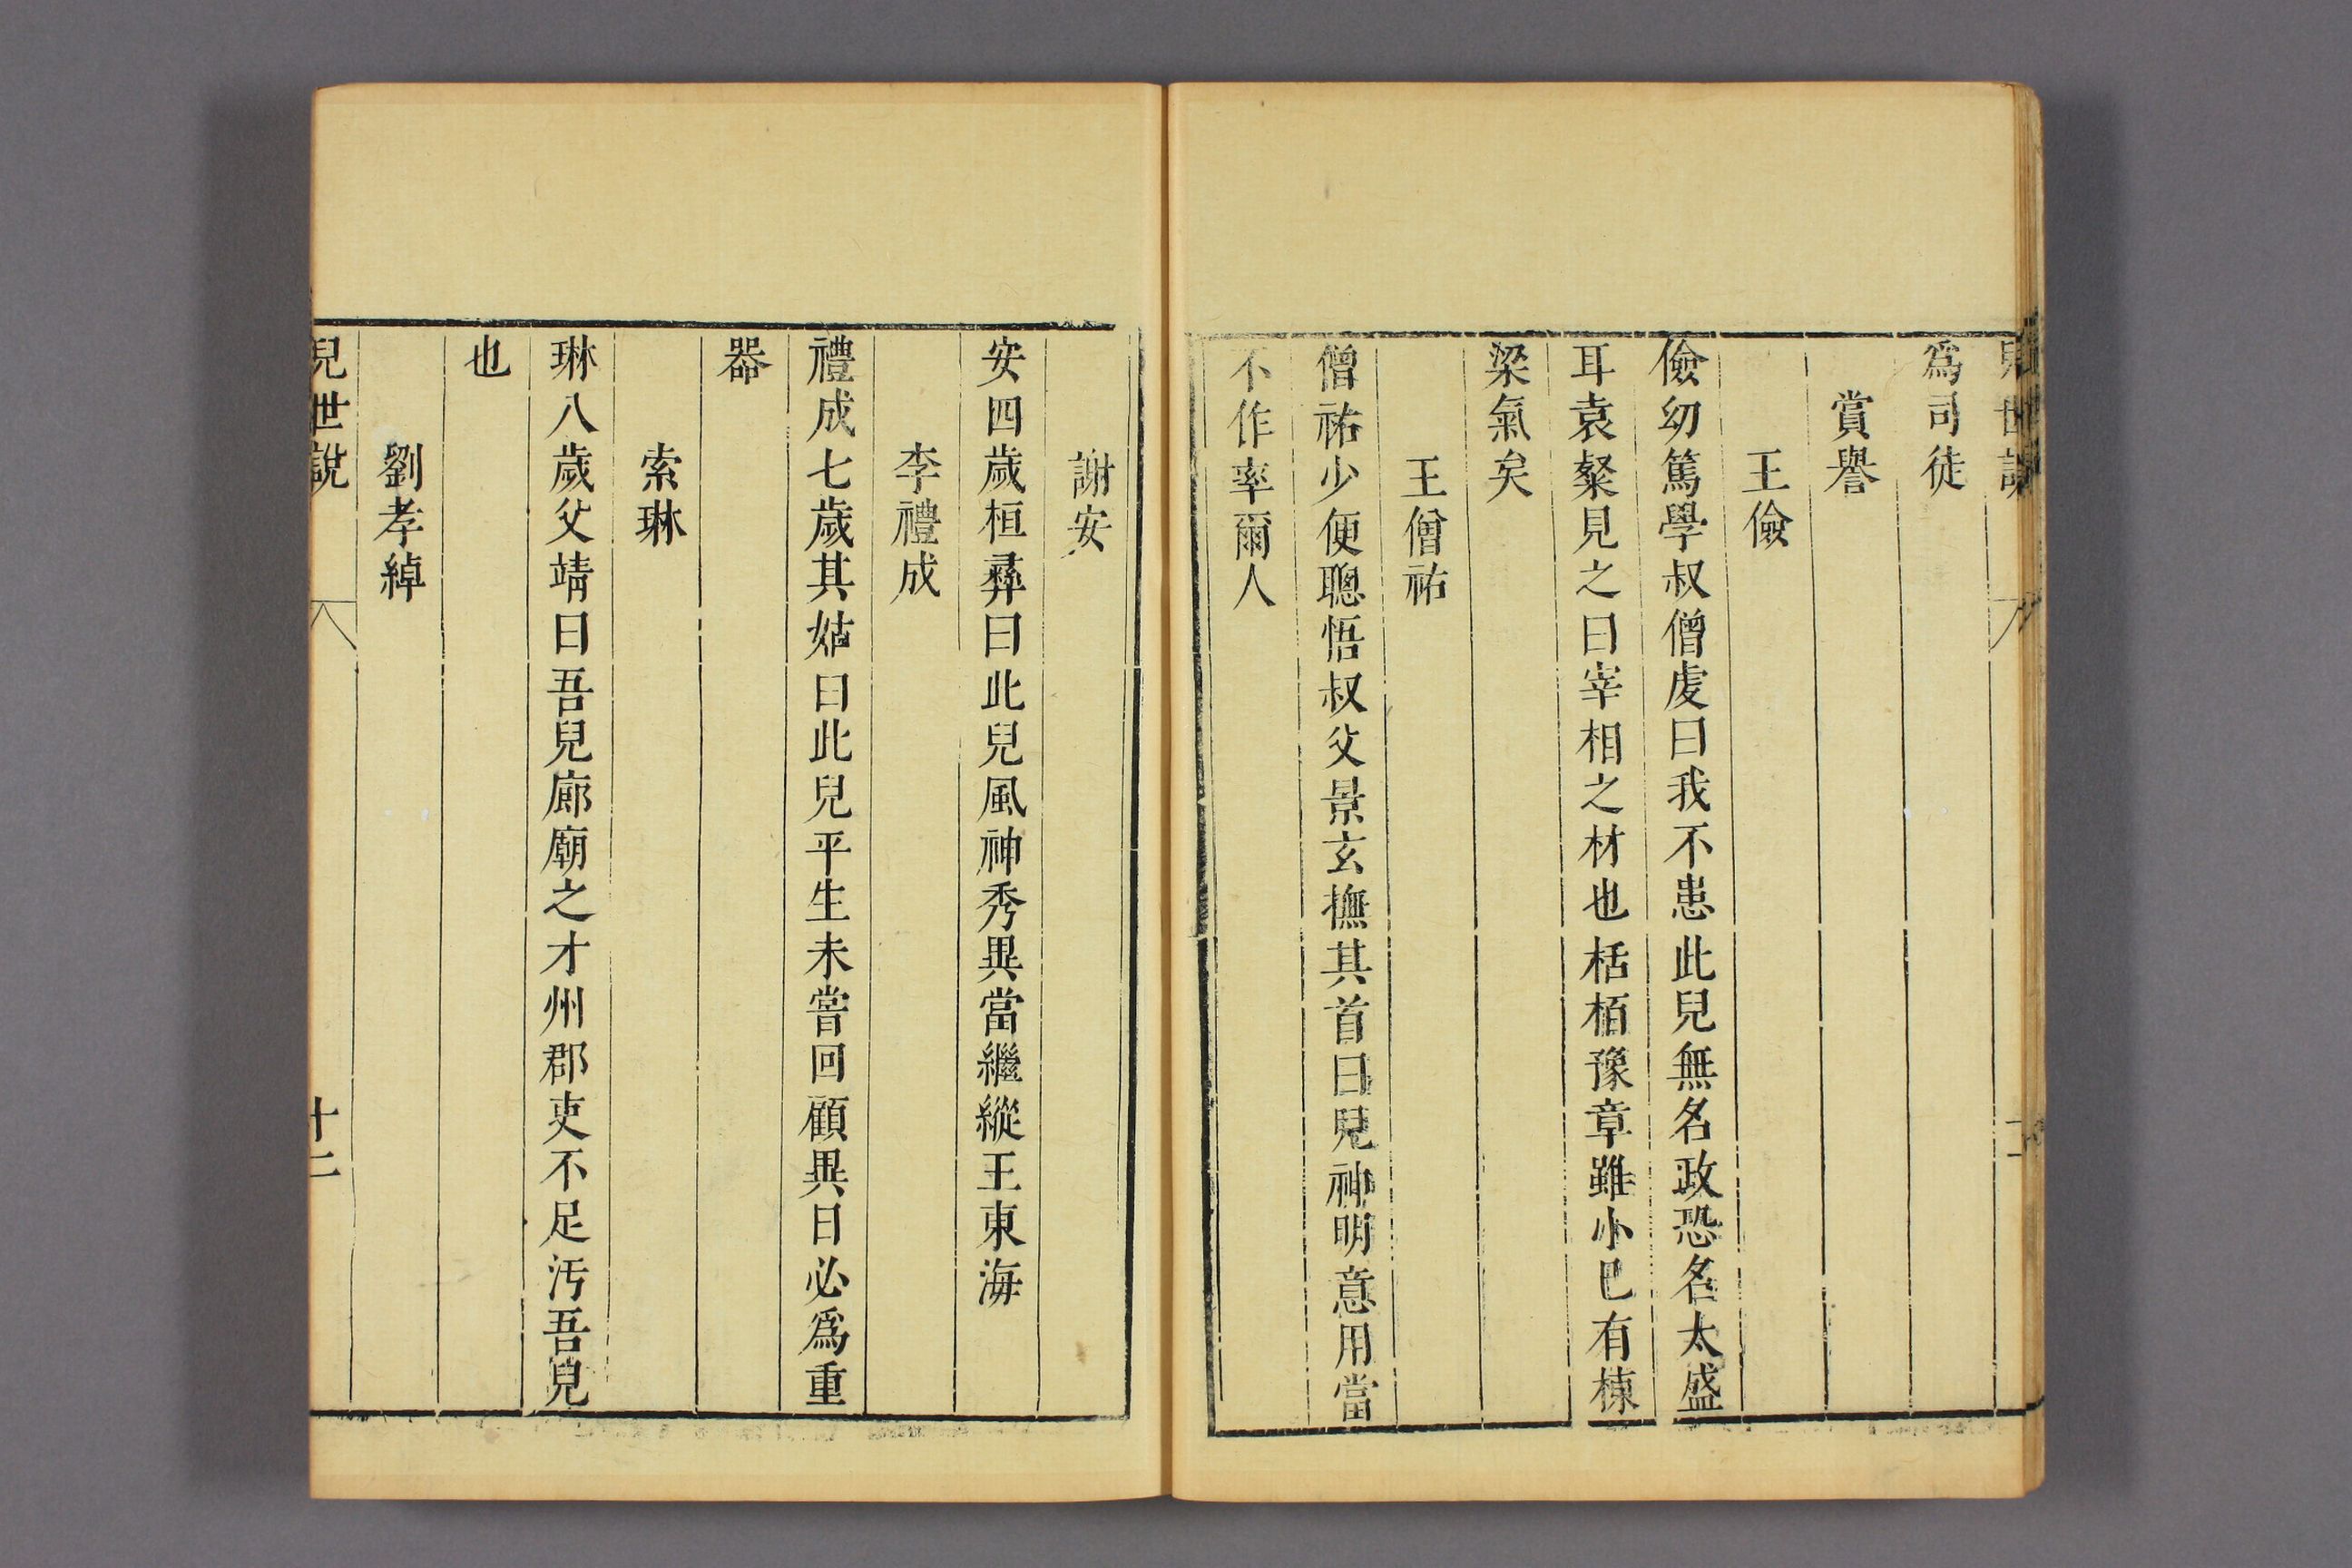 兒世說
爲司徒
賞譽
王儉
儉幼篤學叔僧虔曰我不患此兒無名政恐名太盛
耳袁粲見之曰宰相之材也栝栢豫章雖小巳有棟
梁氣矣
王僧祐
僧祐少便聰悟叔父景玄撫其首曰兒神明意用當
不作率爾人
謝安
安四歲桓彞曰此兒風神秀異當繼縱王東海
李禮成
禮成七歲其姑曰此兒平生未嘗回顧異日必爲重
器
索琳
琳八歲父靖曰吾兒廊廟之才州郡吏不足汚吾兒
也
劉孝綽
兒世說
十二